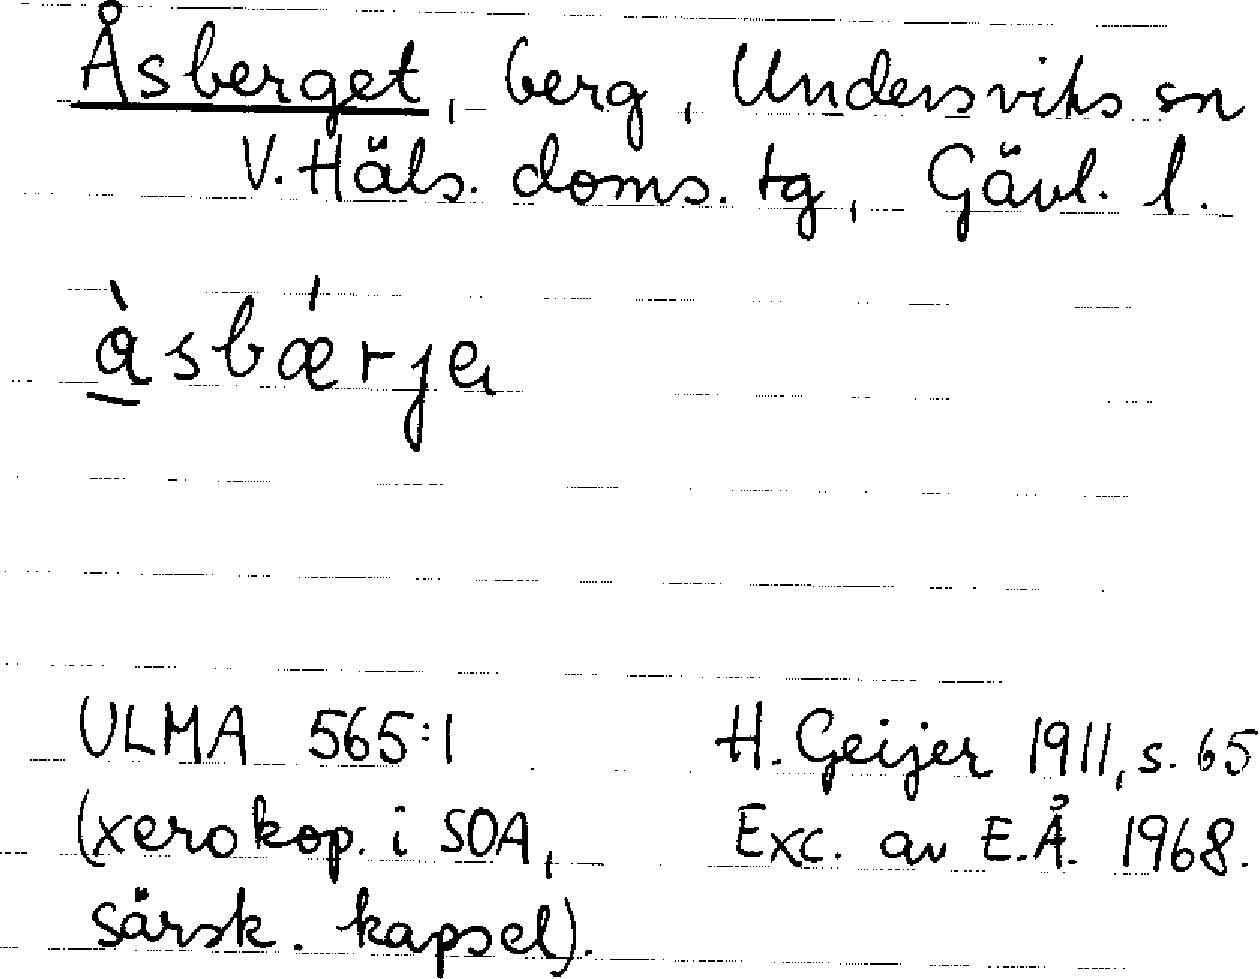 Åsberget, berg, Undersviks sn
V. Häls. doms. tg, Gävl. l.
à̱sbǽrje
ULMA 565:1
(xerokop. i SOA,
särsk. kapsel).
H. Geijer 1911, s. 65
Exc. av E.Å. 1968.